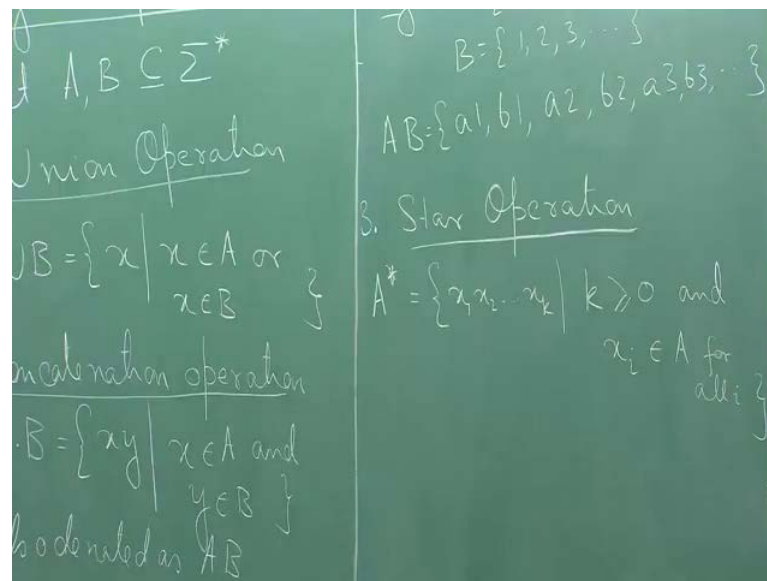 A, B ⊆ Σ*
Union Operation
∪B = { x | x ∈ A or
x ∈ B }
ncatenation operation
.B = { xy | x ∈ A and
y ∈ B }
lso denoted as AB
B = { 1, 2, 3, ... }
AB = { a1, b1, a2, b2, a3, b3, ... }
3. Star Operation
A* = { x₁x₂...xₖ | k ≥ 0 and
xᵢ ∈ A for
all i }